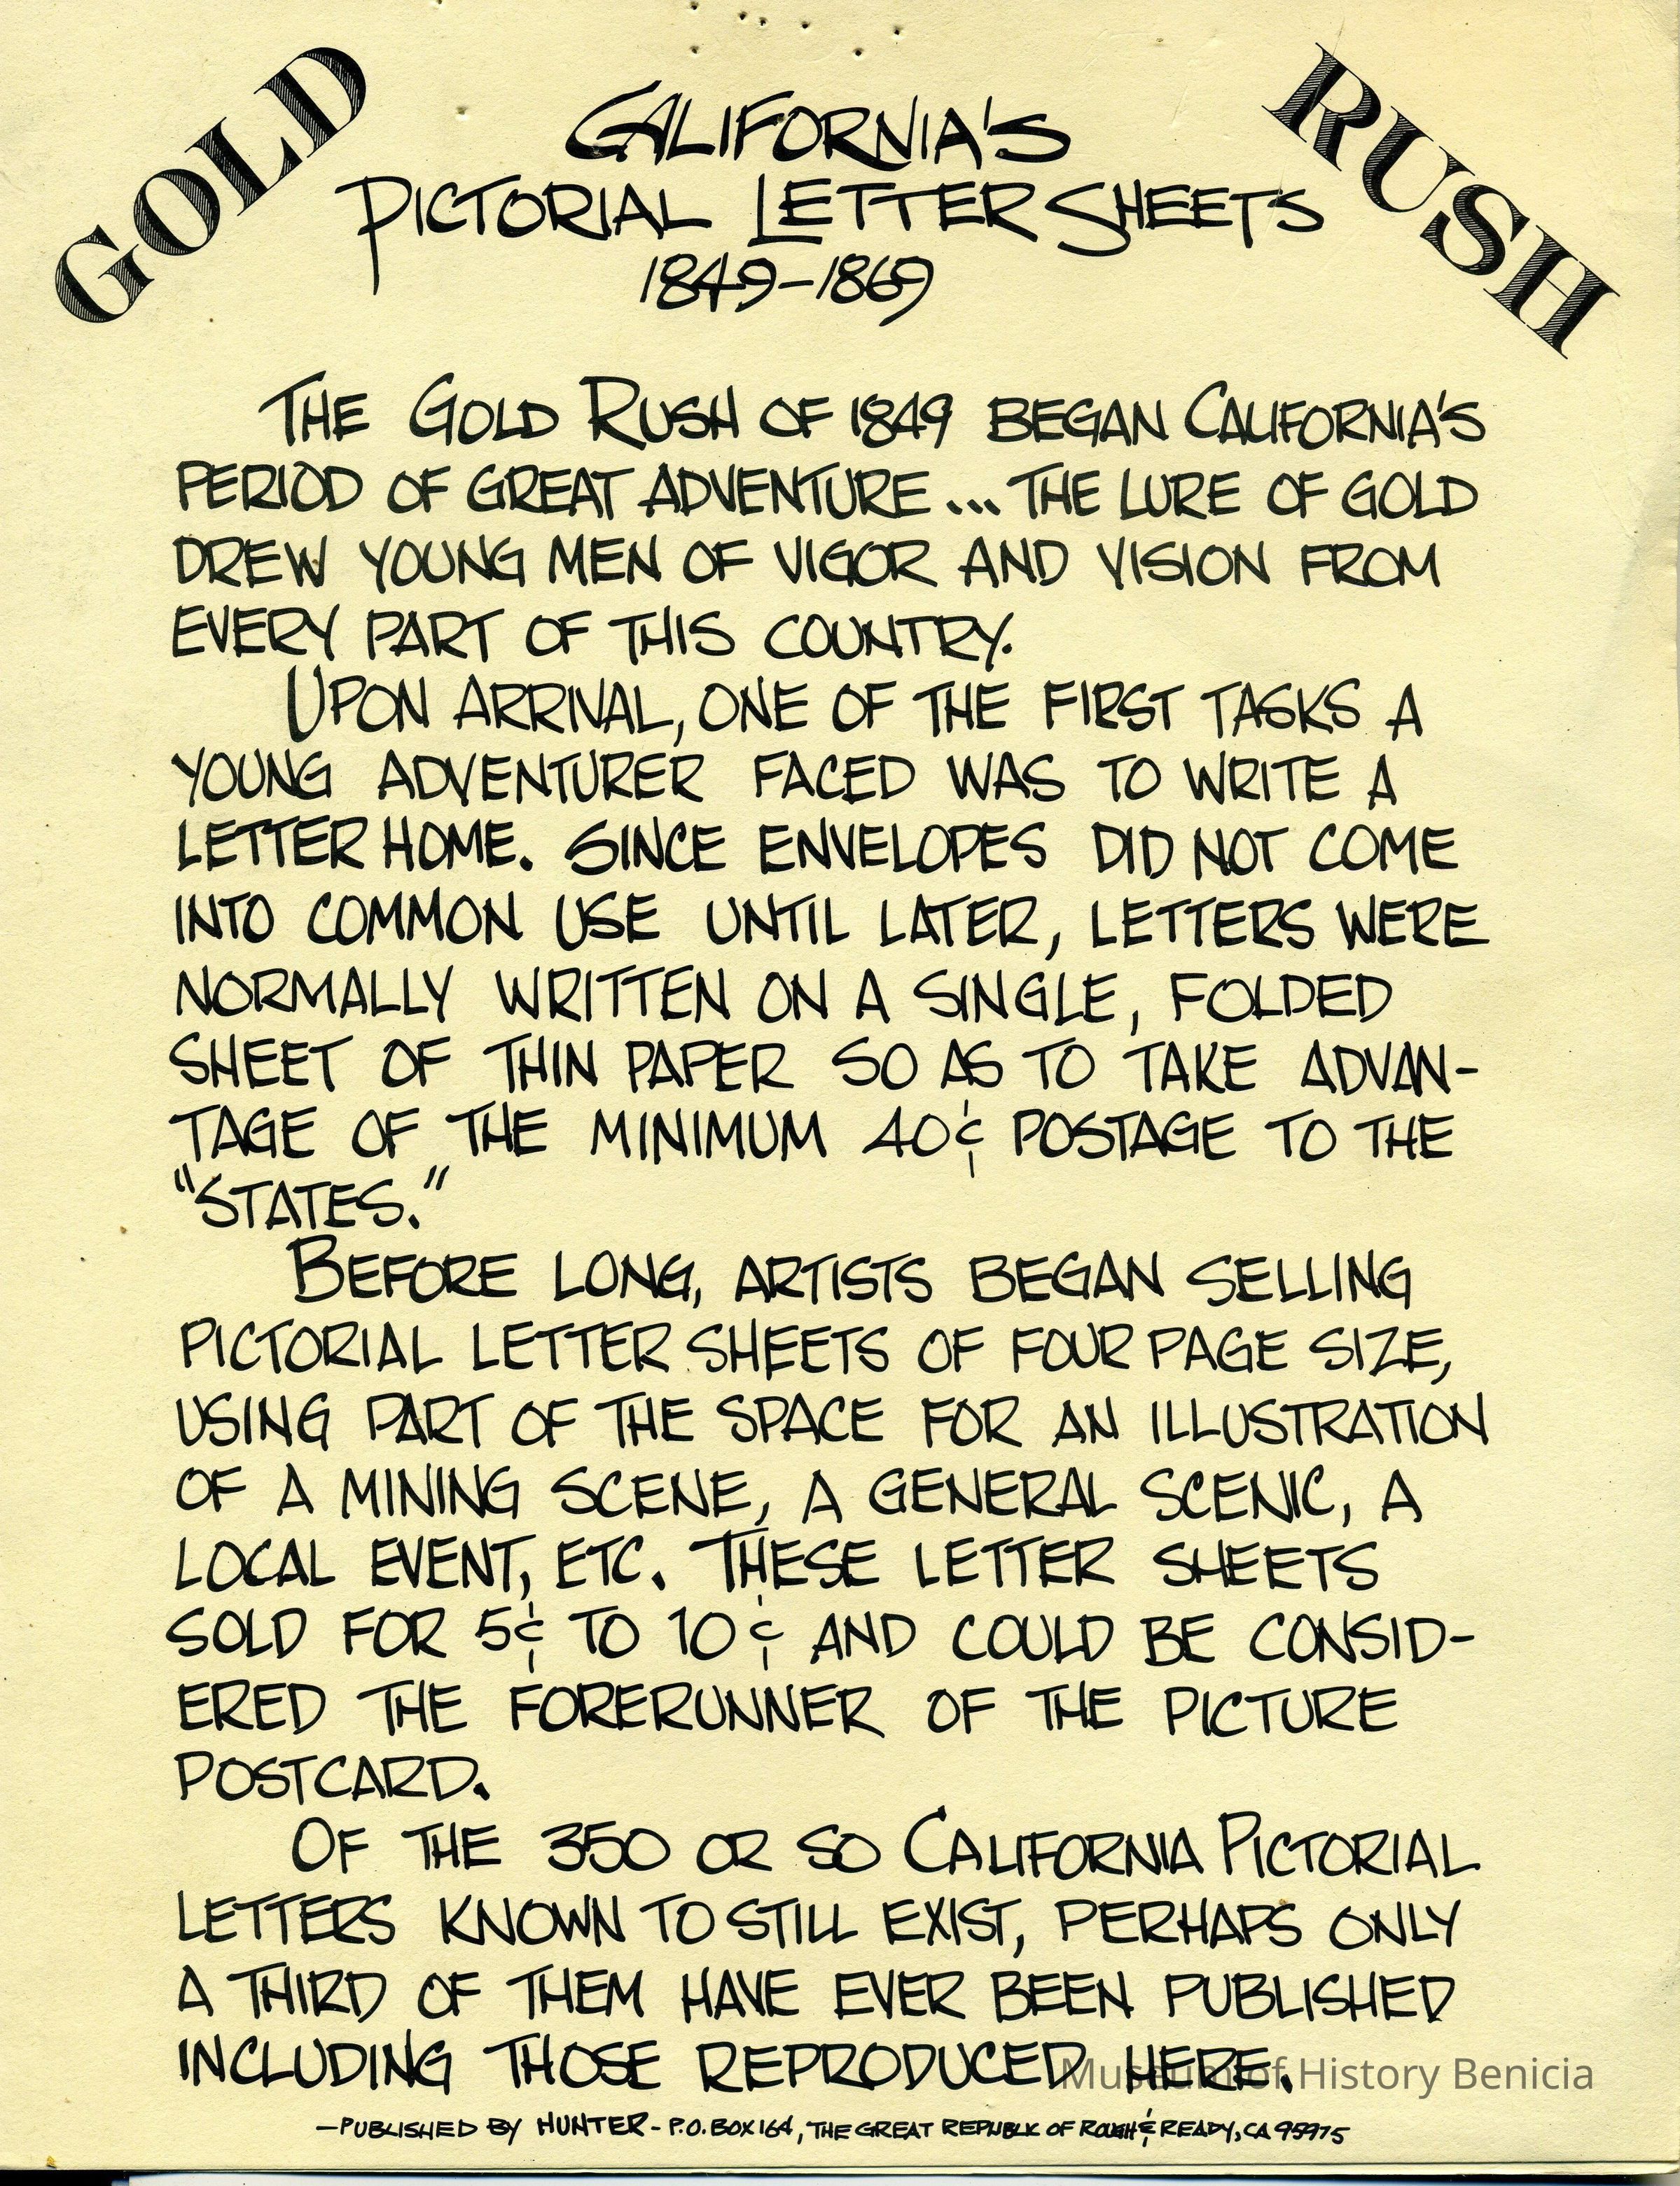 GOLD RUSH
CALIFORNIA'S
PICTORIAL LETTER SHEETS
1849-1869
THE GOLD RUSH OF 1849 BEGAN CALIFORNIA'S
PERIOD OF GREAT ADVENTURE... THE LURE OF GOLD
DREW YOUNG MEN OF VIGOR AND VISION FROM
EVERY PART OF THIS COUNTRY.
UPON ARRIVAL, ONE OF THE FIRST TASKS A
YOUNG ADVENTURER FACED WAS TO WRITE A
LETTER HOME. SINCE ENVELOPES DID NOT COME
INTO COMMON USE UNTIL LATER, LETTERS WERE
NORMALLY WRITTEN ON A SINGLE, FOLDED
SHEET OF THIN PAPER SO AS TO TAKE ADVAN-
TAGE OF THE MINIMUM 40¢ POSTAGE TO THE
"STATES."
BEFORE LONG, ARTISTS BEGAN SELLING
PICTORIAL LETTER SHEETS OF FOUR PAGE SIZE,
USING PART OF THE SPACE FOR AN ILLUSTRATION
OF A MINING SCENE, A GENERAL SCENIC, A
LOCAL EVENT, ETC. THESE LETTER SHEETS
SOLD FOR 5¢ TO 10¢ AND COULD BE CONSID-
ERED THE FORERUNNER OF THE PICTURE
POSTCARD.
OF THE 350 OR SO CALIFORNIA PICTORIAL
LETTERS KNOWN TO STILL EXIST, PERHAPS ONLY
A THIRD OF THEM HAVE EVER BEEN PUBLISHED
INCLUDING THOSE REPRODUCED HERE.
Museum of History Benicia
-PUBLISHED BY HUNTER - P.O. BOX 164, THE GREAT REPUBLIC OF ROUGH & READY, CA 95975